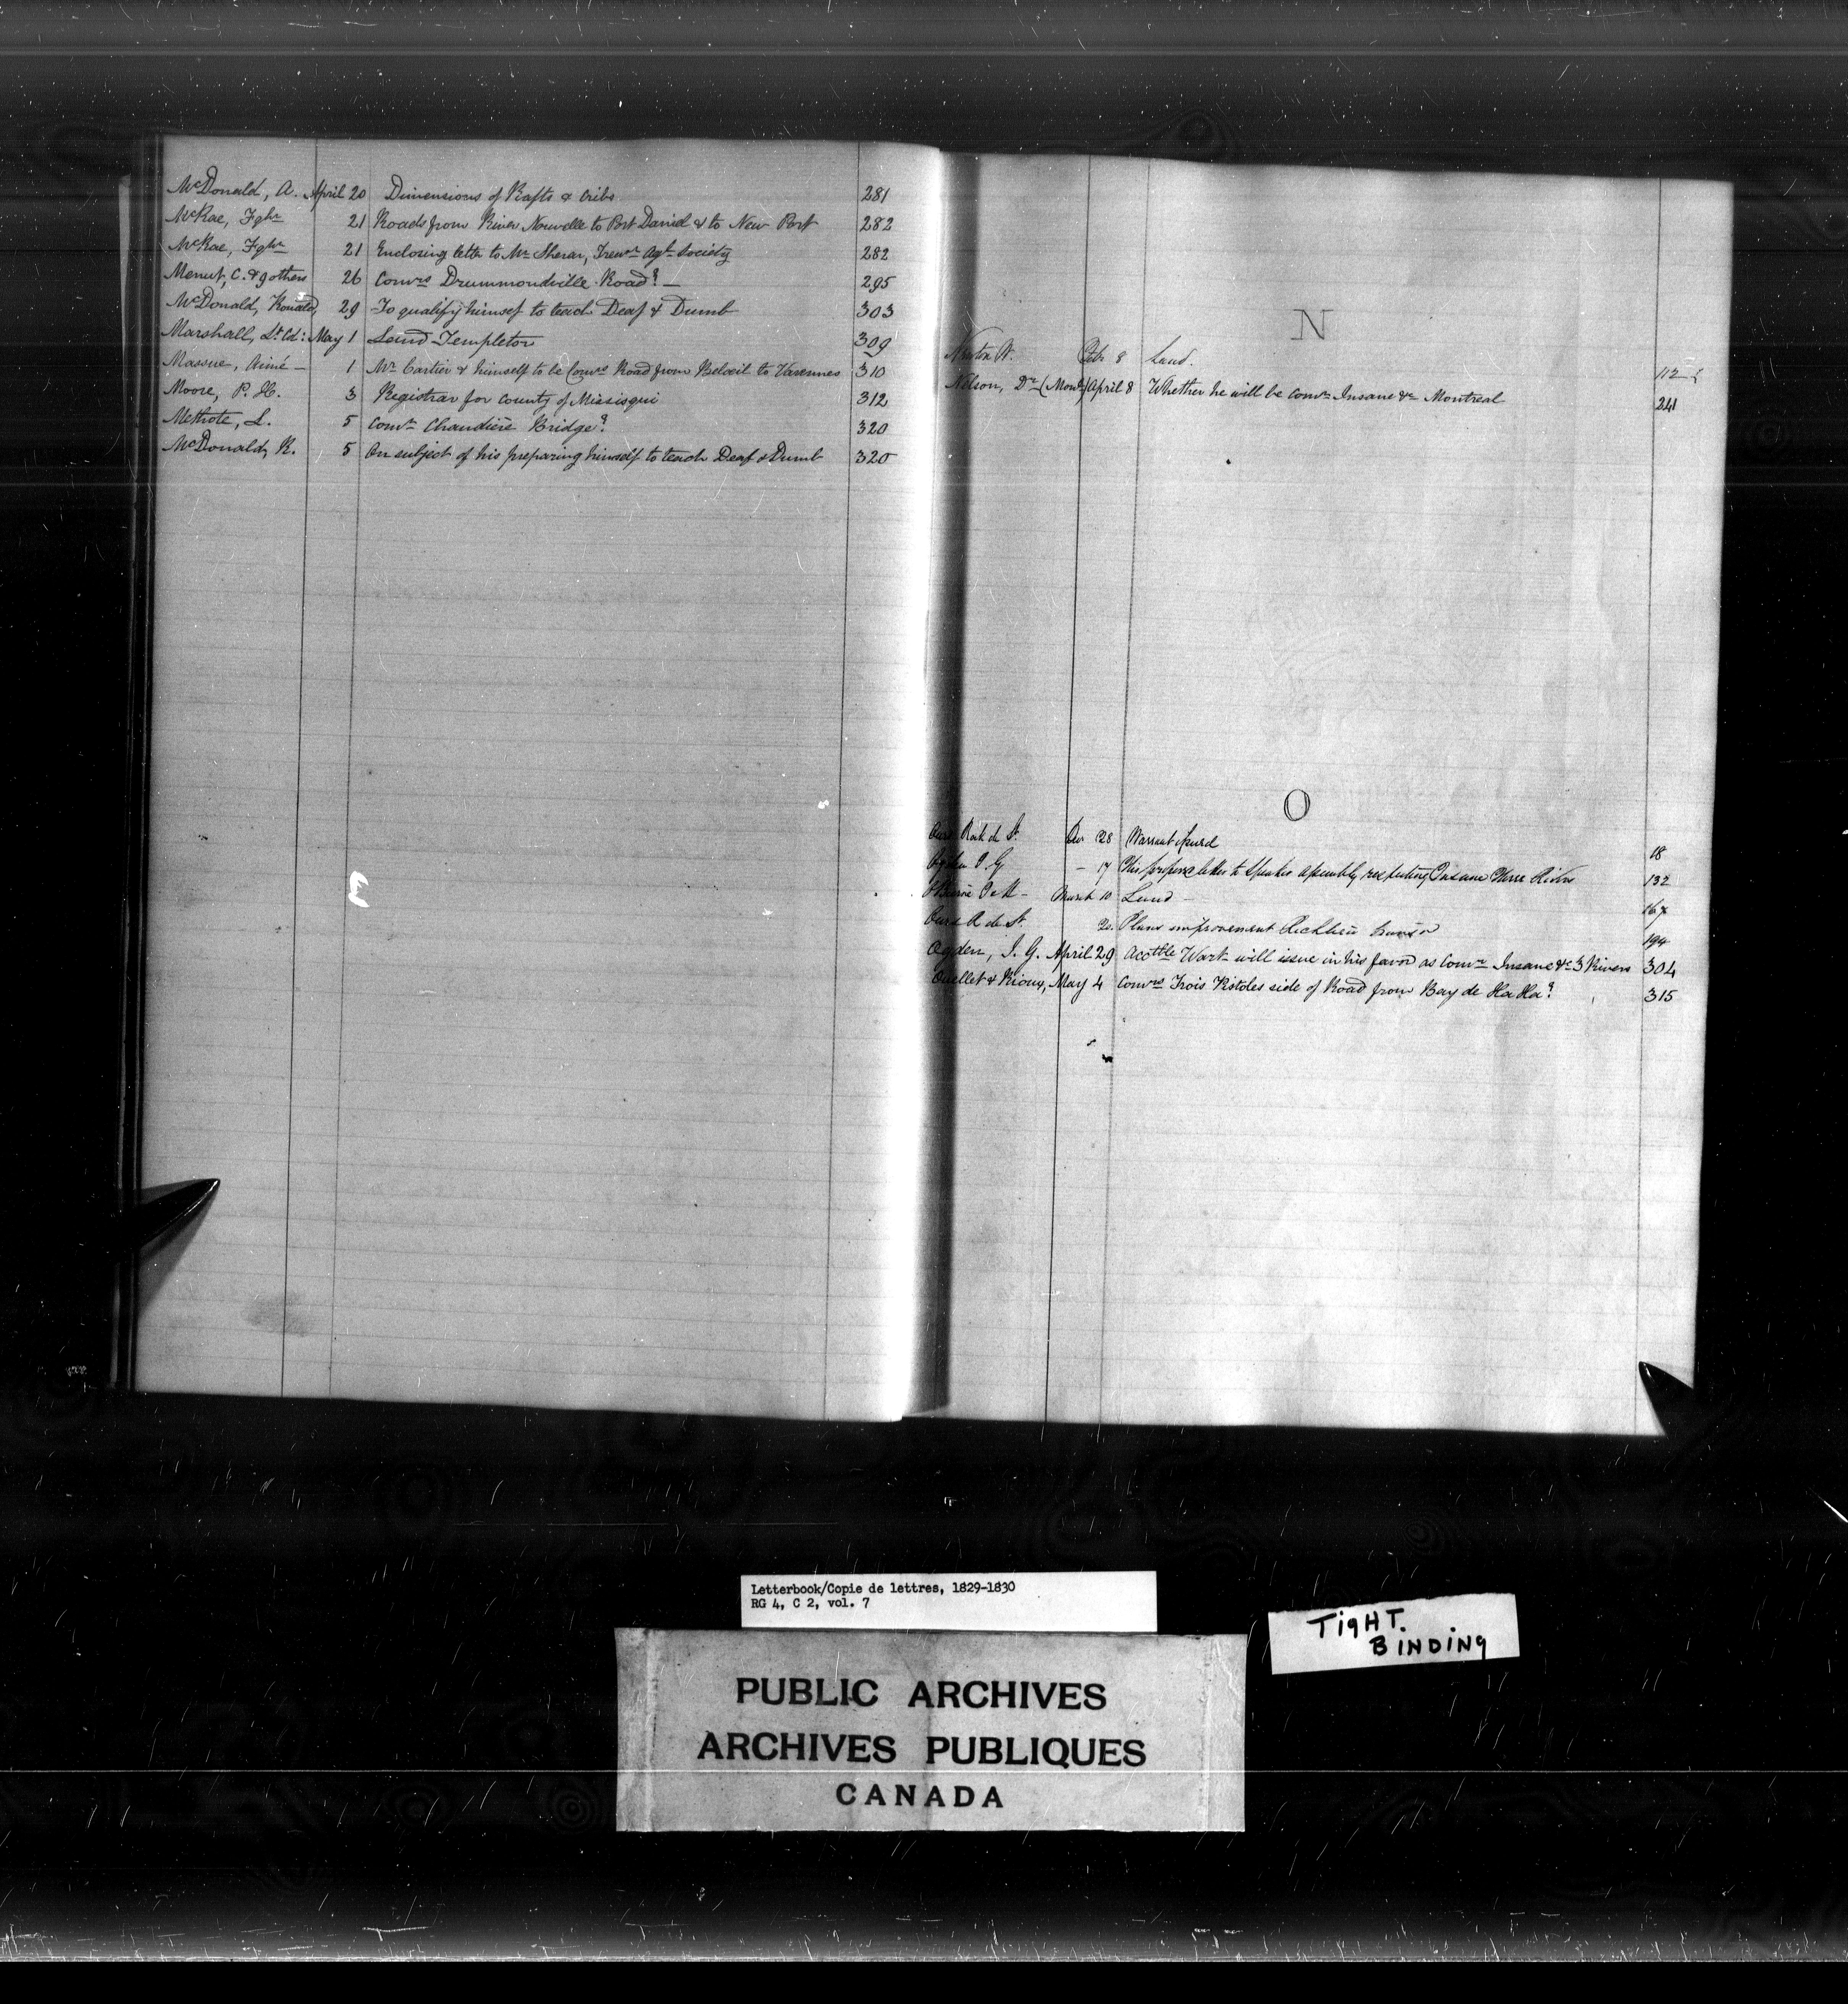 McDonald, A. April 20 Dimensions of Rafts & Cribs 281
McRae, Fghr 21 Roads from River Nouvelle to Port Daniel & to New Port 282
McRae, Fghr 21 Enclosing letter to Mr Sherar, Treasr Agl Society 282
Menut, C. & 9 others 26 Comrs Drummondville Road? — 295
McDonald, Ronald, 29 To qualify himself to teach Deaf & Dumb 303
Marshall, Lt Col: May 1 Land Templeton 309
Massue, Aimé — 1 Mr Cartier & himself to be Comrs Road from Beloeil to Varennes 310
Moore, P. H. 3 Registrar for County of Missisqui 312
Methote, L. 5 Comr Chaudière Bridge? 320
McDonald, R. 5 On subject of his preparing himself to teach Deaf & Dumb 320
N
Newton W. Feb 8 Land. 112
Nelson, Dr (Montl) April 8 Whether he will be Comr Insane &c Montreal 241
O
Ours Roch de St. Dec 28 Warrant issued 18
Ogden I G — 17 His letter to Speaker Assembly respecting Insane Three Rivers 132
March 10 Land — 167
Ours R de St. 20. Plans improvement Richlieu River 194
Ogden, I. G. April 29 Acctble Wart will issue in his favor as Comr Insane &c 3 Rivers 304
Ouellet & Rioux, May 4 Comrs Trois Pistoles side of Road from Bay de Ha Ha? 315
Letterbook/Copie de lettres, 1829-1830
RG 4, C 2, vol. 7
TIGHT.
BINDING
PUBLIC ARCHIVES
ARCHIVES PUBLIQUES
CANADA